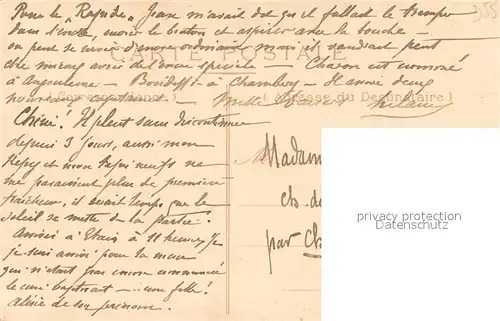 Pour le "Rapide" Jean m'avait dit qu'il fallait le tremper
dans l'encre, mouiller le bouton et aspirer avec la bouche —
on peut se servir d'encre ordinaire mais il vaudrait peut
être mieux avoir de l'encre spéciale — Chavon est nommé
à Angoulême — à Chambéry — Il envoie deux
nouveaux
CARTE POSTALE
Correspondance
Adresse du Destinataire
Chéri! Il pleut sans discontinuer
depuis 3 jours, aussi mon
et mon ne
me paraissent plus de première
fraîcheur, il serait temps que le
soleil se mette de la partie.
Arrivés à Etais à 11 heures je
je suis arrivé pour la messe
qui n'était pas encore commencée
le curé baptisait — une fille!
Alisée de son prénom.
Madame
ch. de
par Ch
privacy protection
Datenschutz
358